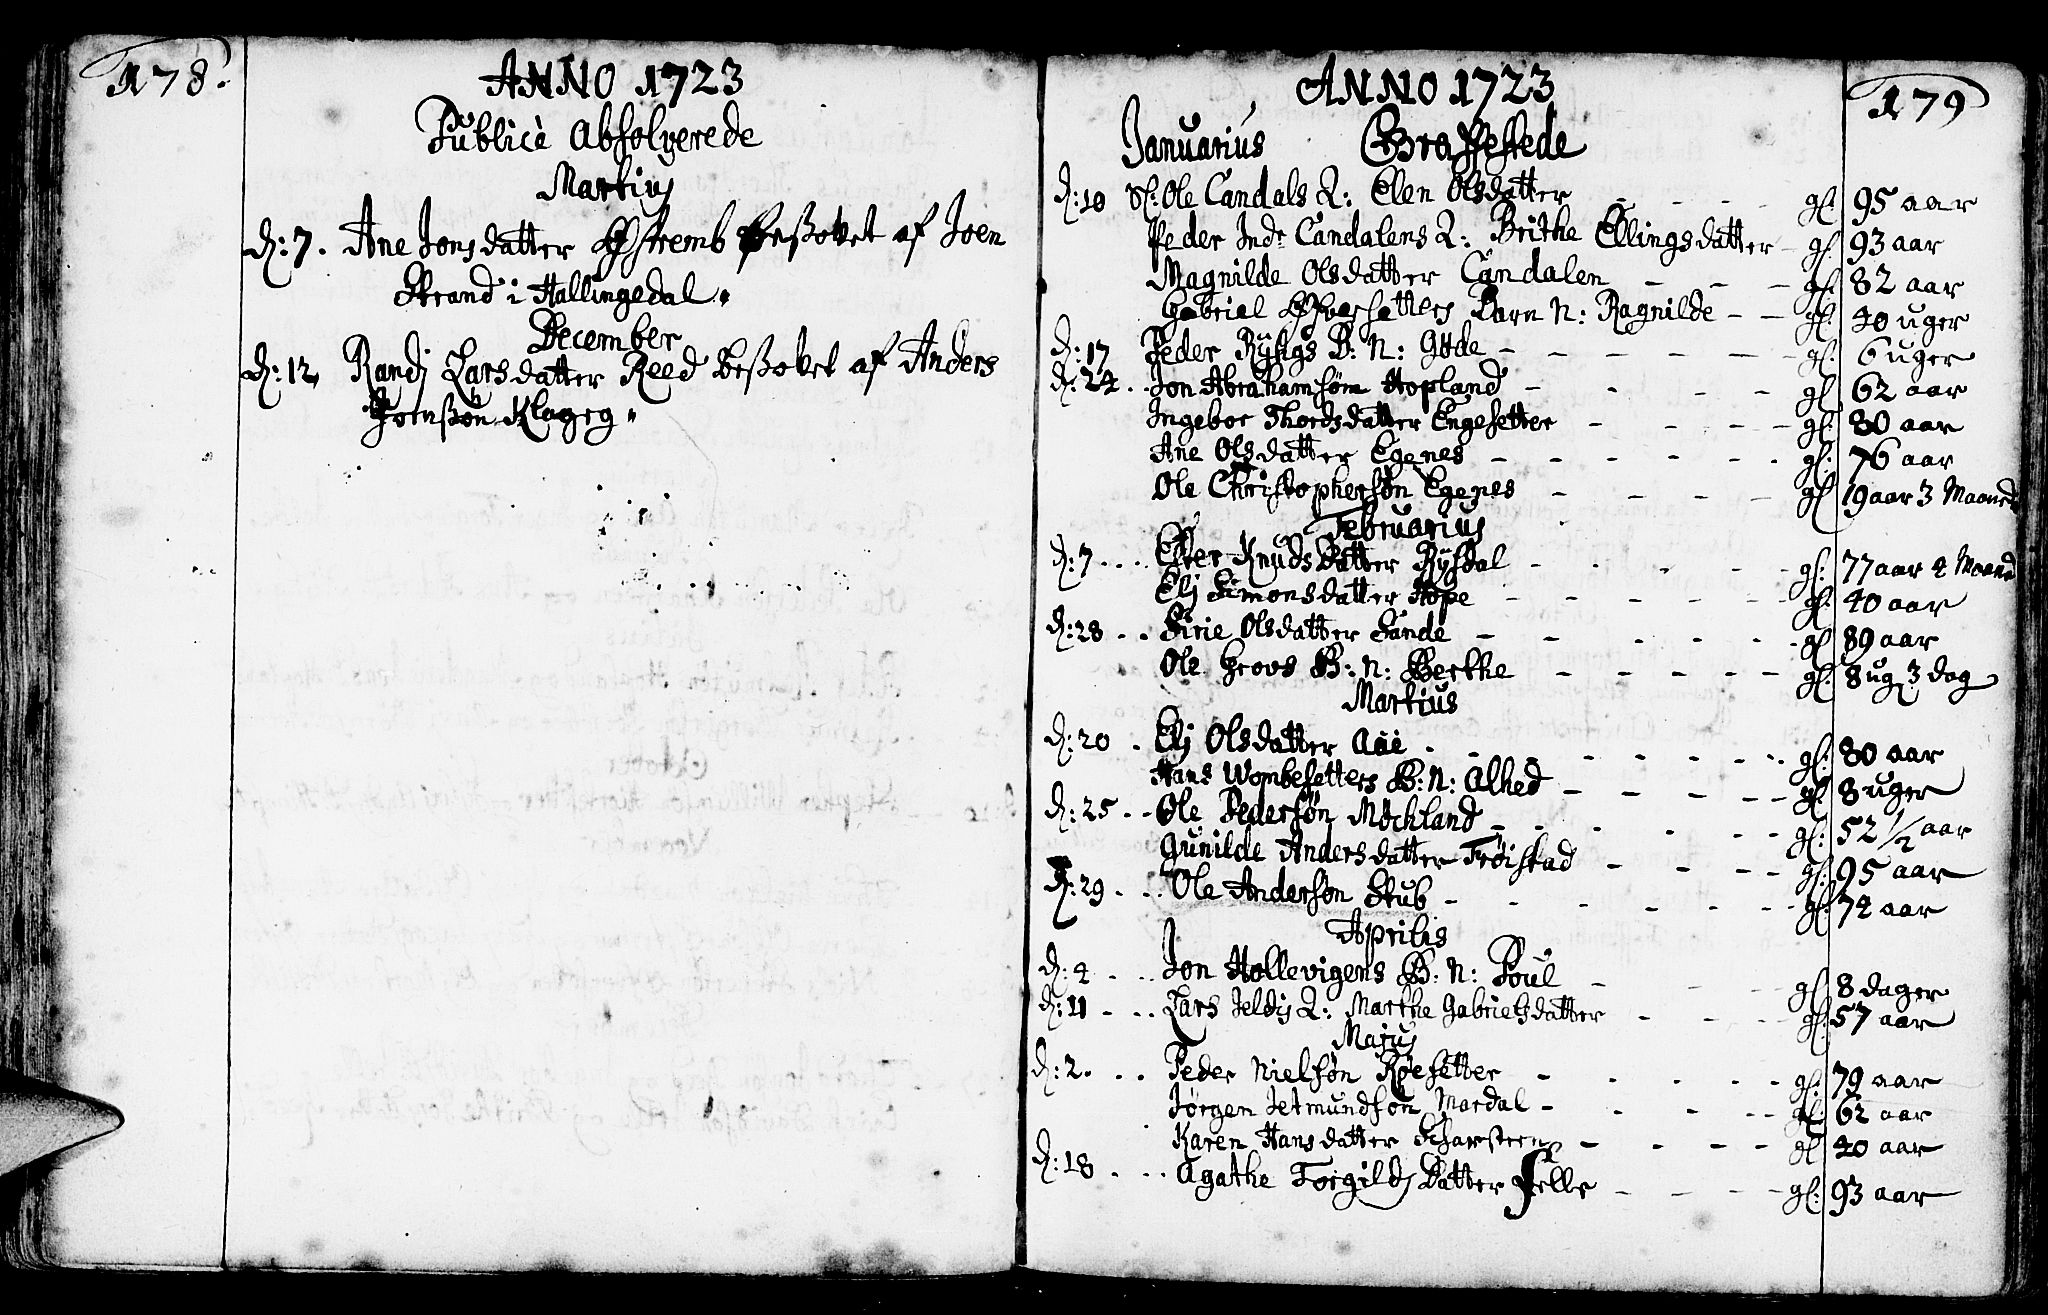 178.
ANNO 1723
Publicè Absolverede
Martius
d: 7. Ane Jonsdatter beßovet af Joen
Strand i Hallingedal.
December
d: 12, Randj Larsdatter Reed beßovet af Anders
Jornßøn
179
ANNO 1723
Januarius Begraffestede
d: 10 Sl: Ole Candals Q: Elen Olsdatter - - - gl: 95 aar
Peder Indr Candalens Q: Brithe Ellingsdatter - gl: 93 aar
Magnilde Olsdatter Candalen - - - gl: 82 aar
Gabriel Barn N: Ragnilde - - gl: 40 uger
d: 17 Peder B: N: Gøde - - - - - - gl: 6 uger
d: 24 . . Jon Abrahamsøn Hopland - - - - gl: 62 aar
Ingebor Thordsdatter Engesetter - - - - gl: 80 aar
Ane Olsdatter Egenes - - - - - - gl: 76 aar
Ole Christophersøn Egenes - - - - gl: 19 aar 3 Maaned
Februarius
d: 7 . . . Knudsdatter Rysdal - - - - gl: 77 aar 4 Maaned
Elj Simonsdatter Hope - - - - - - gl: 40 aar
d: 28 . . Sirie Olsdatter Sande - - - - - - gl: 89 aar
Ole Grovs B: N: Berthe - - - - - gl: 8 ug 3 dag
Martius
d: 20 . Elj Olsdatter Aae - - - - - - gl: 80 aar
Hans Wombesetters B: N: Alhed - - - - - gl: 8 uger
d: 25 . . Ole Pedersøn Møchland - - - - - gl: 52 1/2 aar
Gunilde Andersdatter Trøistad - - - - gl: 95 aar
d: 29 . . . Ole Andersøn Stub - - - - - - gl: 74 aar
Aprilis
d: 4 . . . Jon Hollevigens B: N: Poul - - - gl: 8 dager
d: 11 - . . Lars Jeldis Q: Marthe Gabrielsdatter - - - gl: 57 aar
Majus
d: 2. . . Peder Nielsøn Røesetter - - - - - gl: 79 aar
Jørgen Jetmundsøn Mardal - - - - gl: 62 aar
Karen Hansdatter - - - - gl: 40 aar
d: 18 . . . Agathe Torgildsdatter - - - - gl: 93 aar